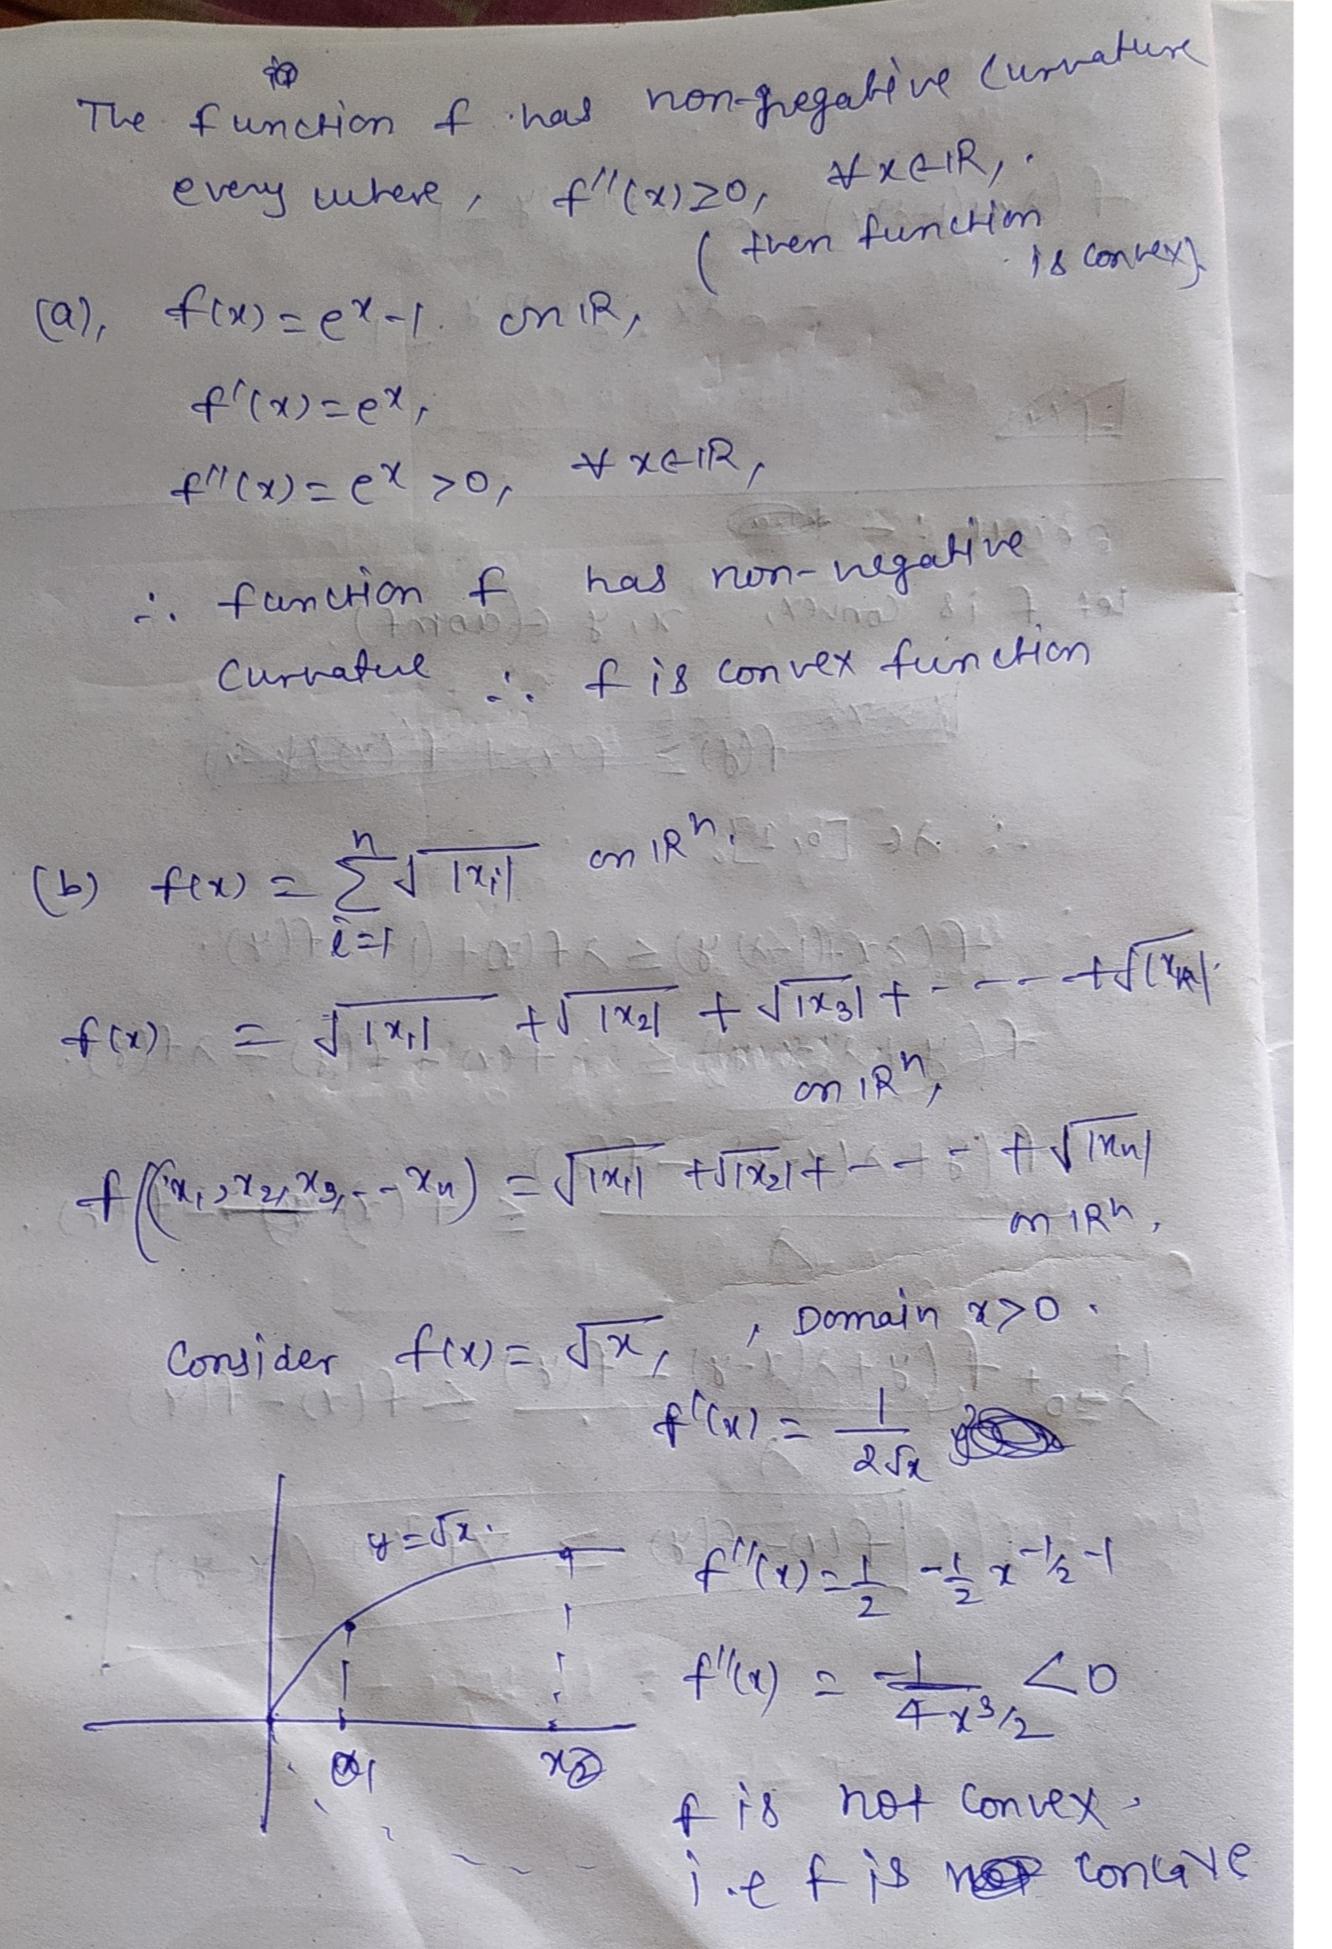 The function f has non-negative curvature
every where, f''(x)≥0, ∀x∈IR,
(then function
is convex).
(a), f(x)=e^x-1. on IR,
f'(x)=e^x,
f''(x)=e^x >0, ∀ x∈IR,
∴ function f has non-negative
Curvature ∴ f is convex function
(b) f(x) = Σ_{i=1}^{n} √|xi| on IR^n.
f(x) = √|x1| + √|x2| + √|x3| + - - - - + √|xn|.
on IR^n,
f((x1, x2, x3, - - xn) = √|x1| + √|x2| + - - - - + √|xn|
on IR^n,
Consider f(x) = √x, , Domain x>0.
f'(x) = 1/(2√x)
y=√x.
f''(x) = 1/2 -1/2 x^{-1/2 -1}
f''(x) = -1/(4x^{3/2}) <0
x1 x2
f is not convex,
i.e f is concave